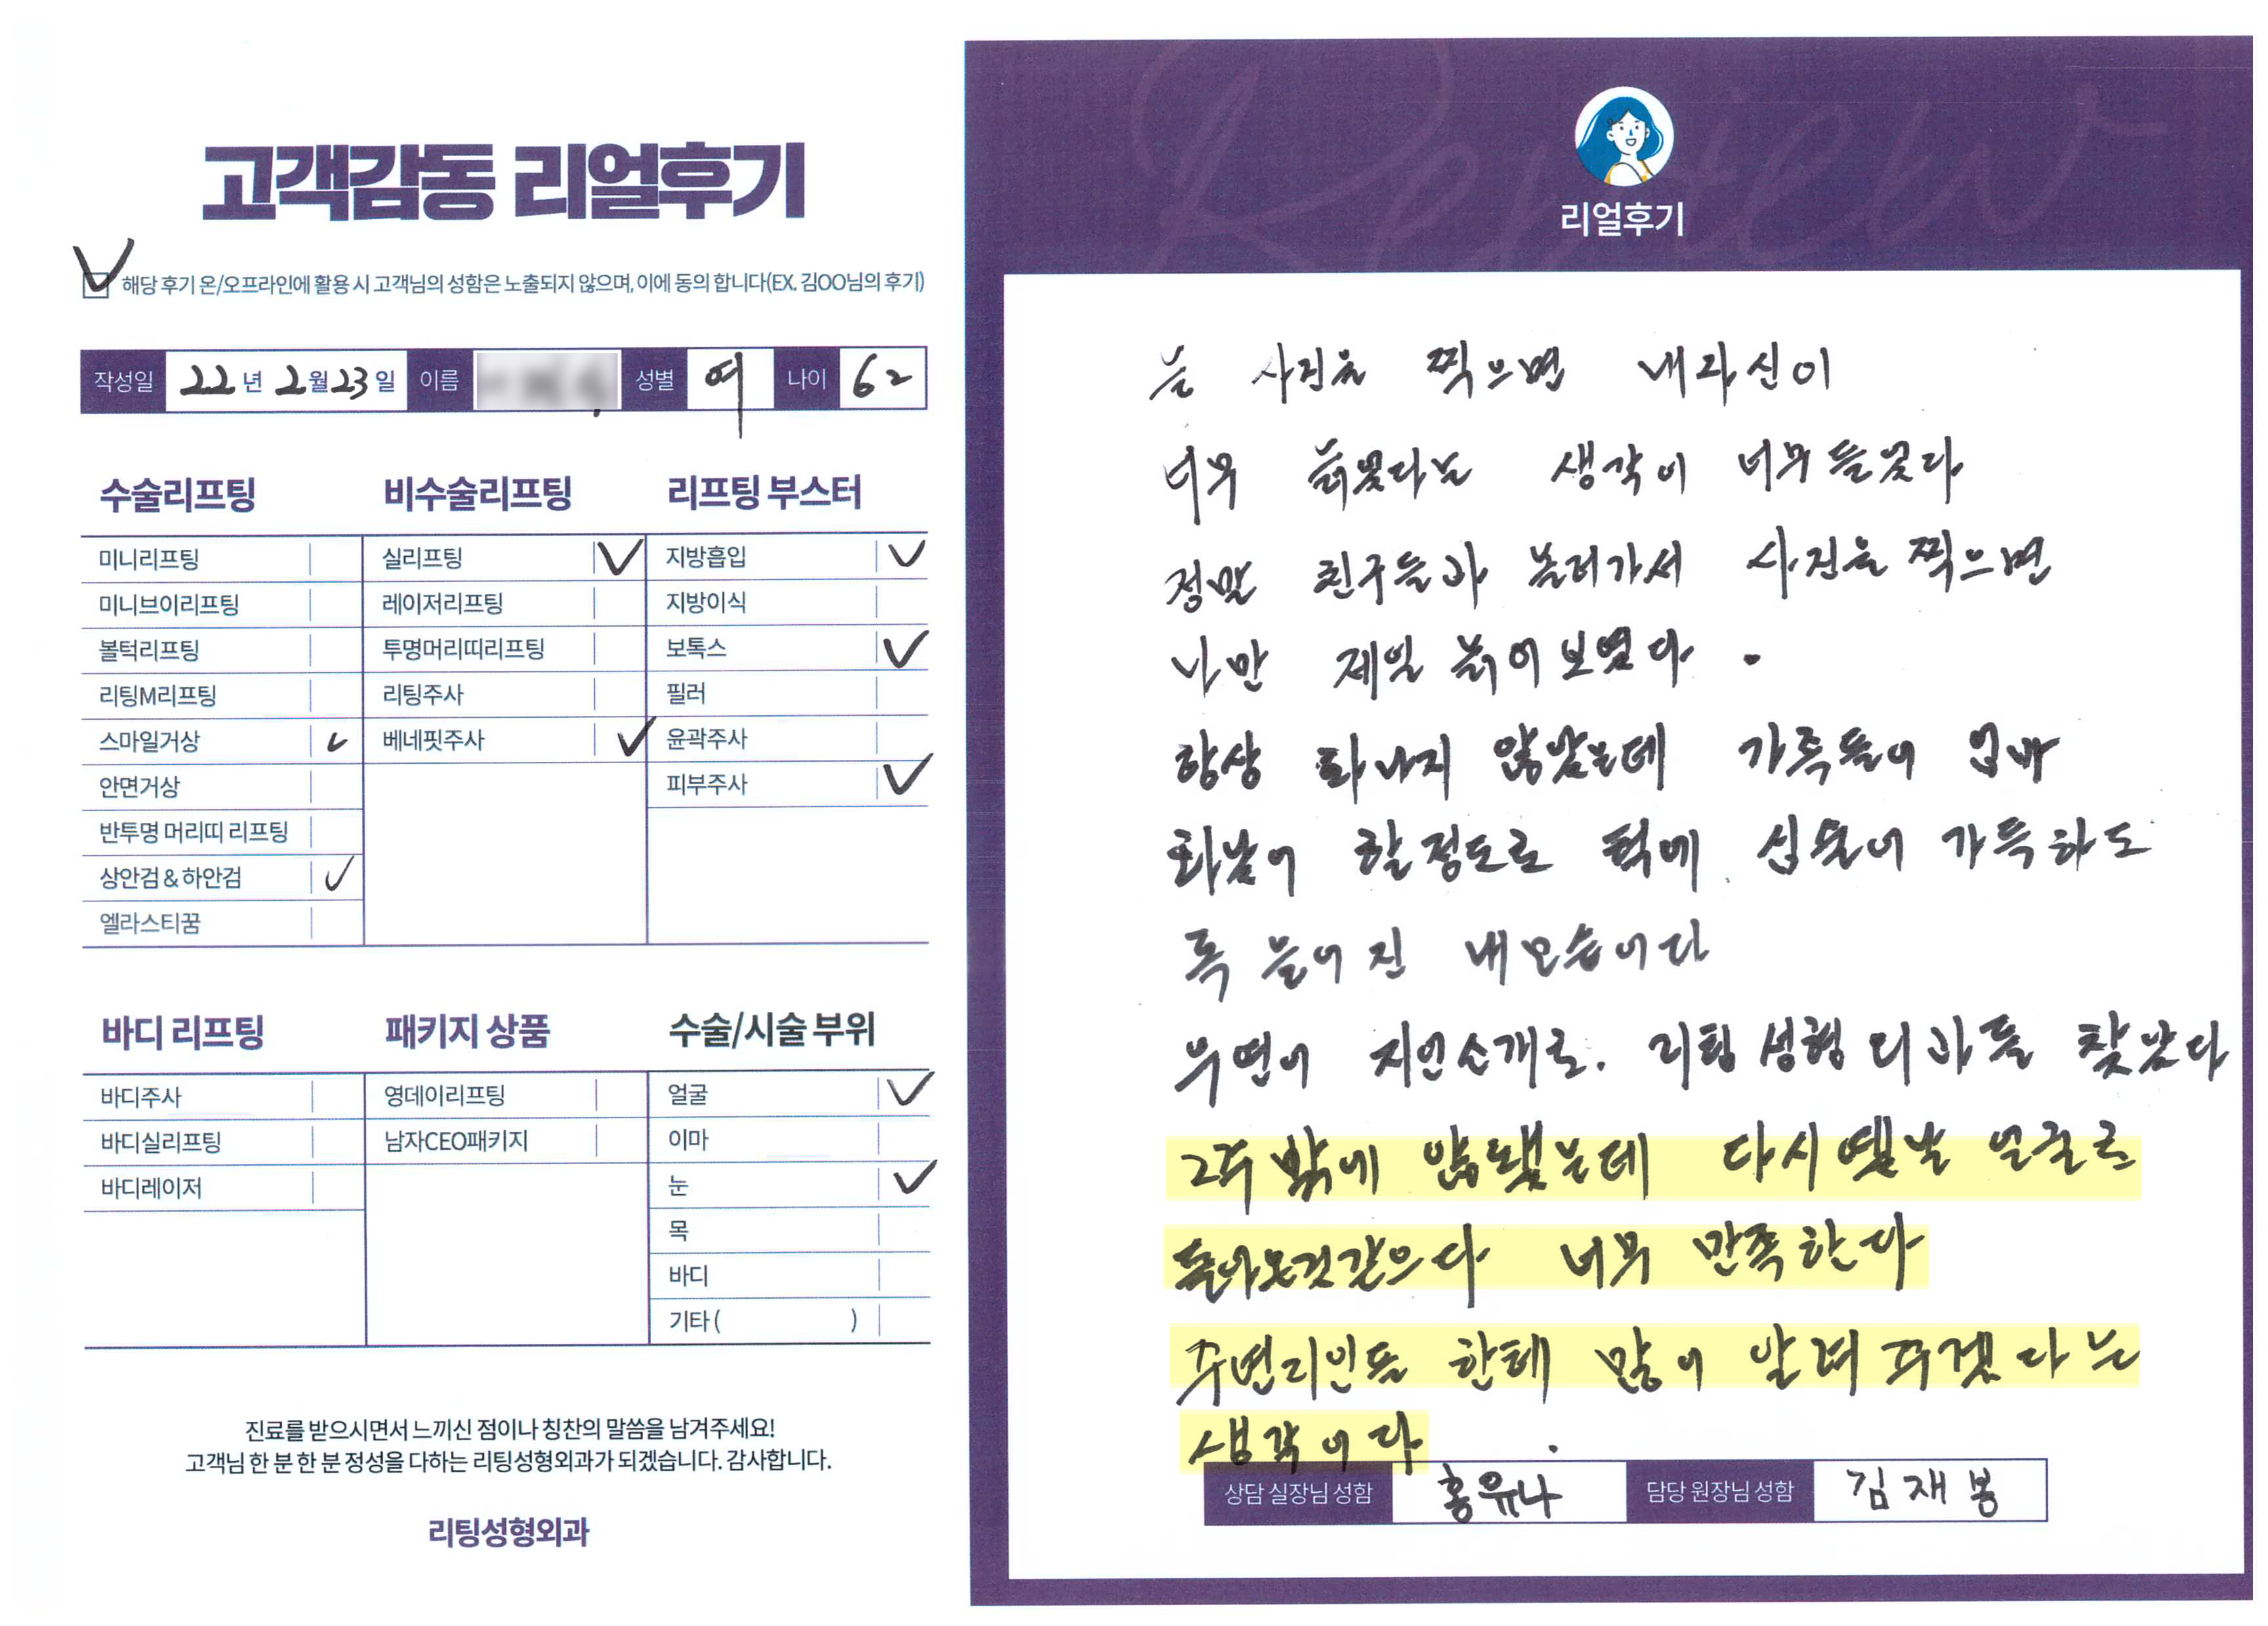 고객감동 리얼후기
해당 후기 온/오프라인에 활용 시 고객님의 성함은 노출되지 않으며, 이에 동의 합니다(EX. 김OO님의 후기)
작성일 22년 2월 23일 이름 성별 여 나이 62
수술리프팅
미니리프팅
미니브이리프팅
볼턱리프팅
리팅M리프팅
스마일거상
안면거상
반투명 머리띠 리프팅
상안검 & 하안검
엘라스티꿈
비수술리프팅
실리프팅
레이저리프팅
투명머리띠리프팅
리팅주사
베네핏주사
리프팅 부스터
지방흡입
지방이식
보톡스
필러
윤곽주사
피부주사
바디 리프팅
바디주사
바디실리프팅
바디레이저
패키지 상품
영데이리프팅
남자CEO패키지
수술/시술 부위
얼굴
이마
눈
목
바디
기타 ( )
진료를 받으시면서 느끼신 점이나 칭찬의 말씀을 남겨주세요!
고객님 한 분 한 분 정성을 다하는 리팅성형외과가 되겠습니다. 감사합니다.
리팅성형외과
Review
리얼후기
늘 사진을 찍으면 내자신이
너무 늙었다는 생각이 너무 들었다
정말 친구들과 놀러가서 사진을 찍으면
나만 제일 늙어보였다.
항상 화나지 않았는데 가족들이 엄마
화났어 할정도로 턱에 심술이 가득하도
록 늘어진 내모습이다
우연이 지인소개로. 리팅성형외과를 찾았다
2주밖에 않됐는데 다시 옛날 얼굴로
돌아온것같으다 너무 만족한다
주변지인들 한테 많이 알려주겠다는
생각이다.
상담 실장님 성함 홍유나 담당 원장님 성함 김재봉